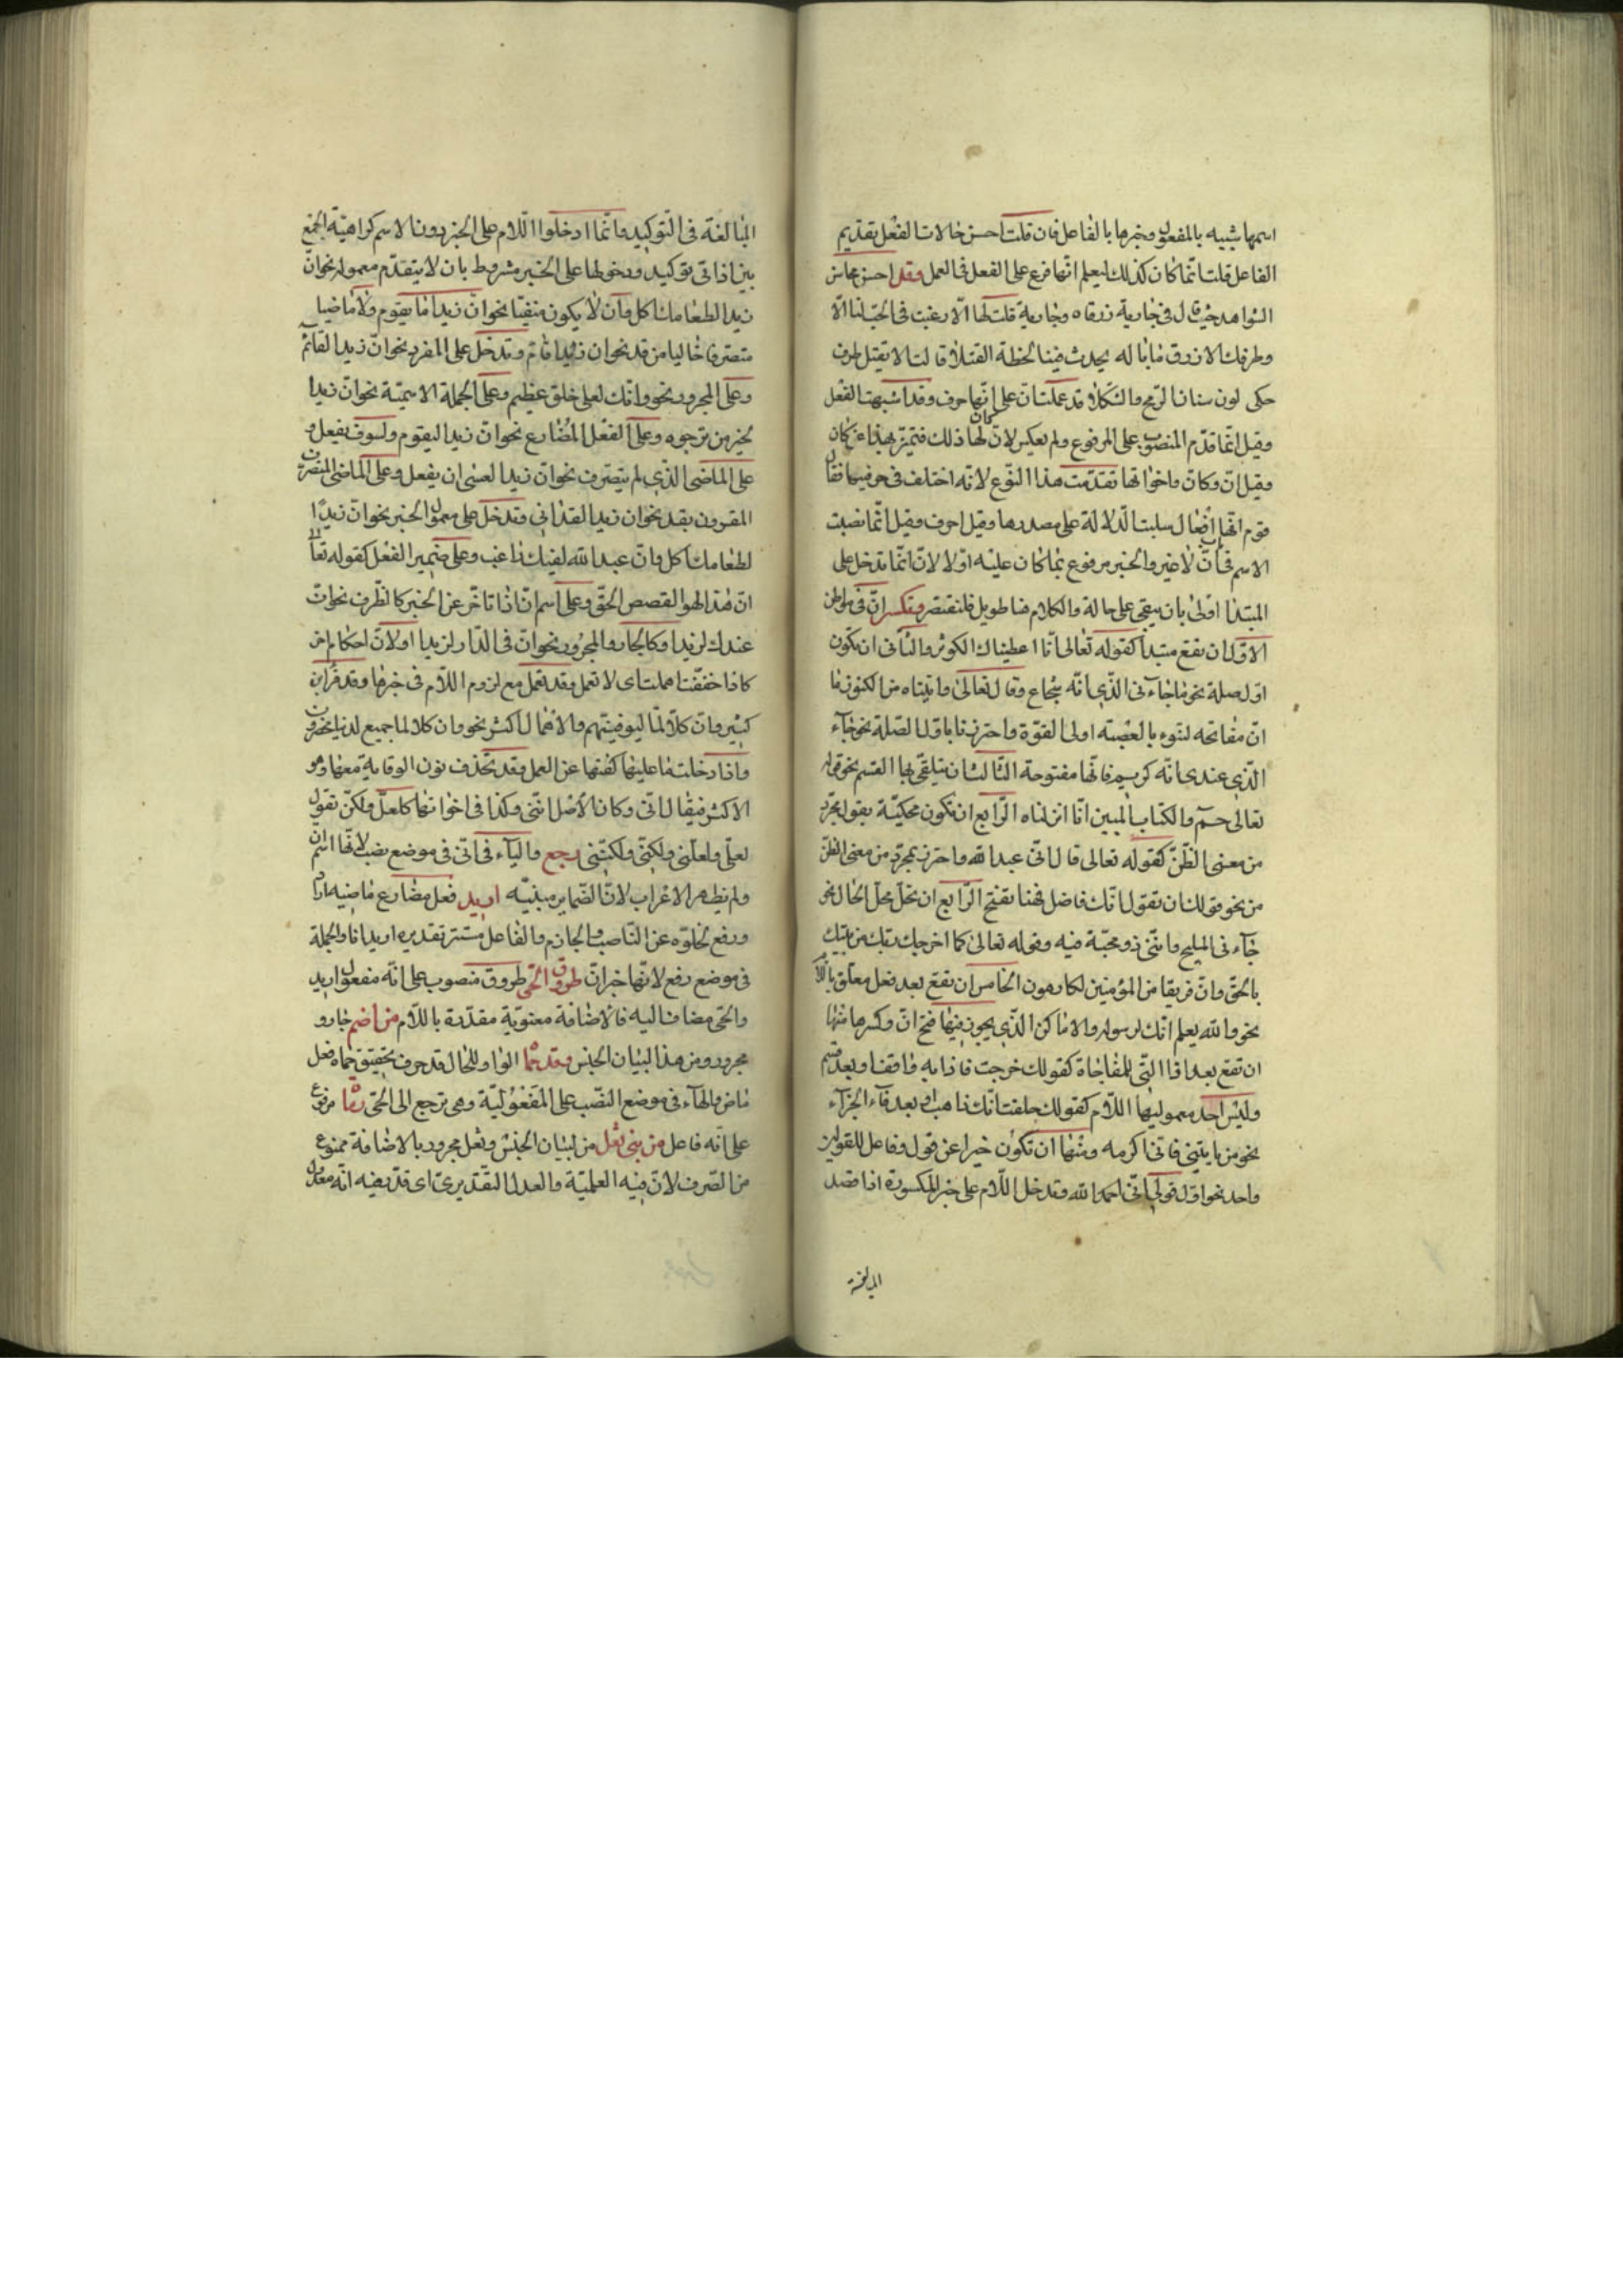 اسمها شبيه بالمفعول وخبرها بالفاعل فان قلت احسن حالات الفعل بتقديم
الفاعل قلت انما كان كذلك ليعلم انها فرع على الفعل في العمل وقد احسن محاسن
الشواهد حيث قال في جارية زرقاء وجارية قلت لها الا رغبت في الحب لنا الا
وطرفك الازرق ما باله يحدث فينا لحظة القتلا قالت لا يقتل طرف
حكى لون سنان الرمح والشكلا قد عملت ان على انها حرف وقد اشبهت الفعل
وقيل انما قدم المنصوب على المرفوع ولم يعكس لان لها ذلك فتميز بهذا عن كان
وقيل ان وكان واخواتها تقدمت هذا النوع لانه اختلف في حرفيتها فقال
قوم انها افعال سلبت الدلالة على مصدرها وقيل احرف وقيل انما نصبت
الاسم في ان لا غير والخبر مرفوع بما كان عليه اولا لان انما تدخل على
المبتدا اولى بان يبقى على حالة والكلام هنا طويل فلنقتصر وتكسر ان في مواطن
الاول ان تقع مبتدا كقوله تعالى انا اعطيناك الكوثر والثاني ان تكون
اول صلة نحو ما جاء في الذي انه شجاع وقال تعالى واتيناه من الكنوز ما
ان مفاتحه لتنوء بالعصبة اولى القوة واحترزنا باول الصلة نحو جاء
الذي عندى انه كريم فانها مفتوحة الثالث ان يتلقى بها القسم نحو قوله
تعالى حم والكتاب المبين انا انزلناه الرابع ان تكون محكية بقول مجرد
من معنى الظن كقوله تعالى قال اني عبد الله واحترز بمجرد من معنى الظن
من نحو قولك ان تقول انك فاضل فهنا تفتح الرابع ان تحل محل الحال نحو
جاء ني المليح وانني ذو محبة فيه وقوله تعالى كما اخرجك ربك من بيتك
بالحق وان فريقا من المؤمنين لكارهون الخامس ان تقع بعد فعل معلق باللام
نحو والله يعلم انك لرسوله والاماكن الذي يجوز فيها فتح ان وكسرها منها
ان تقع بعد اذا التي للمفاجاة كقولك خرجت فاذا به واقفا وبعد قسم
وليس احد معموليها اللام كقولك حلفت انك ذاهب او بعد فاء الجزاء
نحو من ياتني فاني اكرمه ومنها ان تكون خبرا عن قول وفاعل للقولين
واحد نحو اول قولي اني احمد الله وتدخل اللام على خبر المكسورة اذا قصد
المبالغة
المبالغة في التوكيد وانما ادخلوا اللام على الخبر دون الاسم كراهية الجمع
بين اداتي توكيد ودخولها على الخبر مشروط بان لا يتقدم معموله نحو ان
زيدا لطعامك اكل وان لا يكون منفيا نحو ان زيدا ما يقوم ولا ماضيا
متصرفا خاليا من قد نحو ان زيدا قام وتدخل على المفرد نحو ان زيدا لقائم
وعلى المجرور نحو وانك لعلى خلق عظيم وعلى الجملة الاسمية نحو ان زيدا
لخير من ترجوه وعلى الفعل المضارع نحو ان زيدا ليقوم ولسوف يفعل و
على الماضى الذي لم يتصرف نحو ان زيدا لعسى ان يفعل وعلى الماضى المتصرف
المقرون بقد نحو ان زيدا لقد اتى وتدخل على معمول الخبر نحو ان زيدا
لطعامك اكل وان عبد الله لفيك راغب وعلى ضمير الفعل كقوله تعالى
ان هذا لهو القصص الحق وعلى اسم ان اذا تاخر عن الخبر كالظرف نحو ان
عندك لزيدا وكالجار والمجرور نحو ان في الدار لزيدا اولان احكام اخر
كاذا خففت اهملت اى لا تعمل وقد تعمل مع لزوم اللام في خبرها وقد قرا ابن
كثير وان كلا لما ليوفينهم والاهمال اكثر نحو وان كلا لما جميع لدينا محضرون
واذا دخلت ما عليها كفتها عن العمل وقد تحذف نون الوقاية معها وهو
الاكثر فيقال اني وكان الاصل انني وكذا في اخواتها كلعل ولكن تقول
لعلى ولعلني ولكني ولكنني رجع والياء في اني في موضع نصب لانها اسم ان
ولم يظهر الاعراب لان الضماير مبنية اريد فعل مضارع ماضيه اراد
ورفع لخلوه عن الناصب والجازم والفاعل مستتر تقديره اريد انا والجملة
في موضع رفع لانها خبر ان طروق الحى طروق منصوب على انه مفعول اريد
والحى مضاف اليه فالاضافة معنوية مقدرة باللام من اضم جار و
مجرور ومن هذا لبيان الجنس وقد حما الواو للحال قد حرف تحقيق حماه فعل
ماض والهاء في موضع النصب على المفعولية وهى ترجع الى الحى رماة مرفوع
على انه فاعل من بني ثعل من لبيان الجنس وثعل مجرور بالاضافة ممنوع
من الصرف لان فيه العلمية والعدل التقديرى اى قدر فيه انه معدول